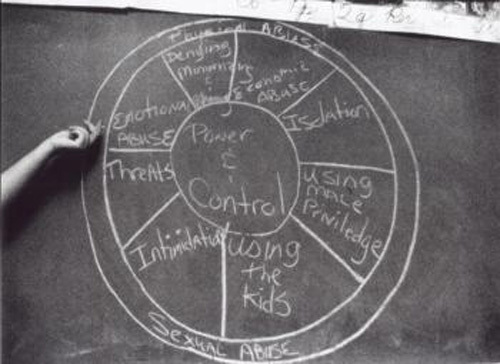 Physical ABUSE
Denying
Minimizing
Economic
ABUSE
Isolation
using
male
Priviledge
using
the
kids
Intimidation
Threats
EMOTIONAL
ABUSE
Power
&
Control
Sexual ABUSE